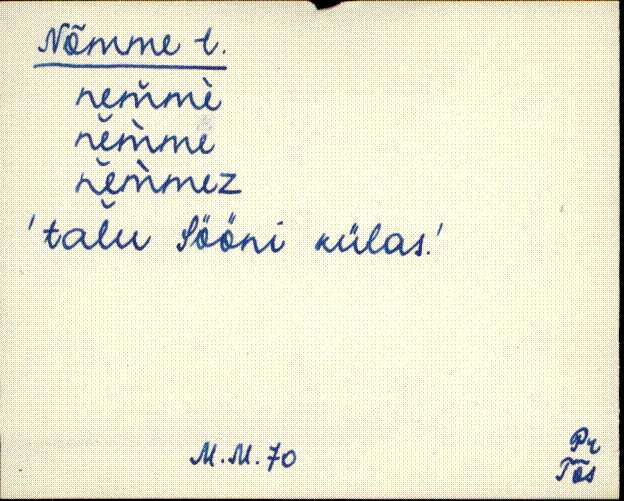 Nõmme t.
nem̆mè
nĕm̀me
nĕm̀mez
'talŭ Sööni külas.'
M. M. 70
Pr
Tõs